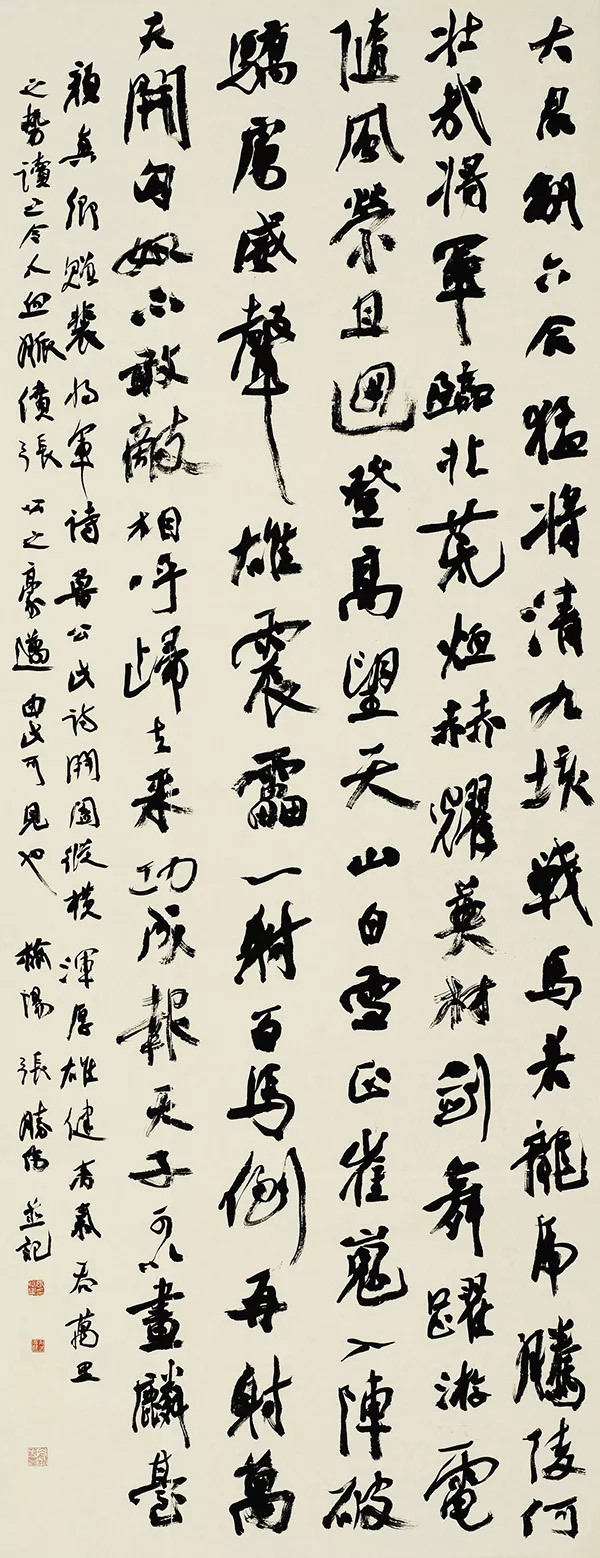 大君制六合猛將清九垓戰馬若龍虎騰陵何
壯哉將軍臨北荒烜赫耀英材劍舞躍游電
隨風縈且迴登高望天山白雪正崔嵬入陣破
驕虜威聲雄震雷一射百馬倒再射萬
夫開匈奴不敢敵相呼歸去來功成報天子可以畫麟臺
顏真卿贈裴將軍詩魯公此詩開闔縱橫渾厚雄健有氣吞萬里
之勢讀之令人血脈僨張公之豪邁由此可見也 榆陽張勝偉並記